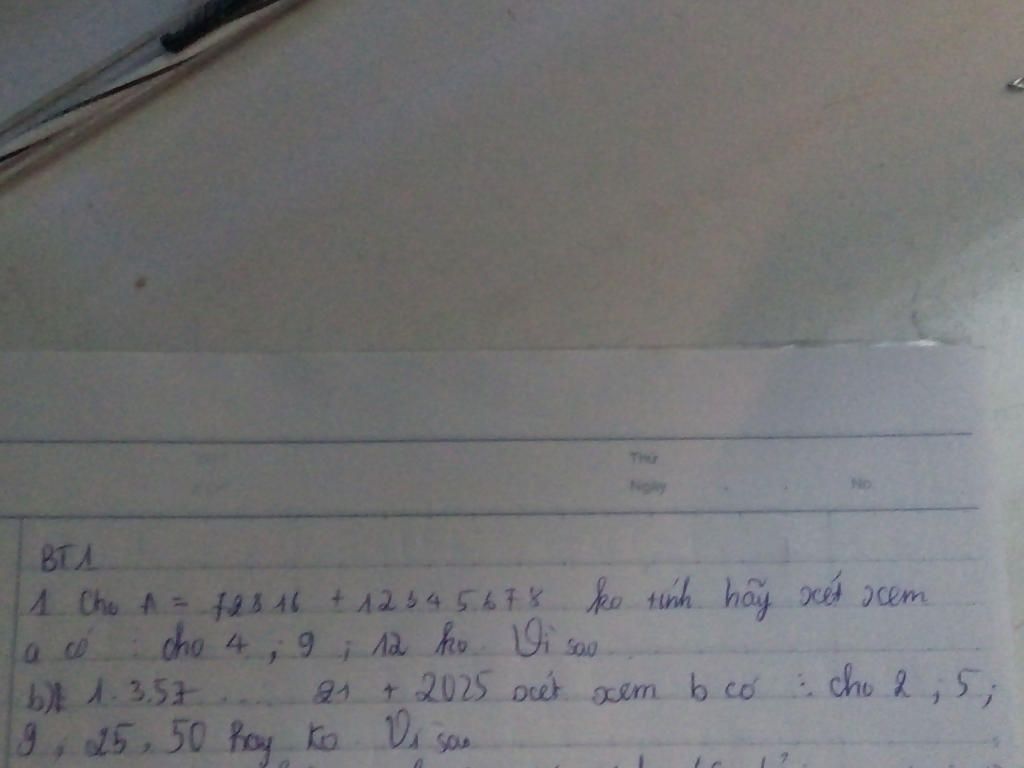 Thứ
Ngày No
BT1
1 Cho A = 72816 + 12345678 ko tính hãy xét xem
a có ⋮ cho 4 ; 9 ; 12 ko Vì sao
b) 1.3.5.7 .... 21 + 2025 xét xem b có ⋮ cho 2 ; 5 ;
9 , 25 , 50 hay ko Vì sao